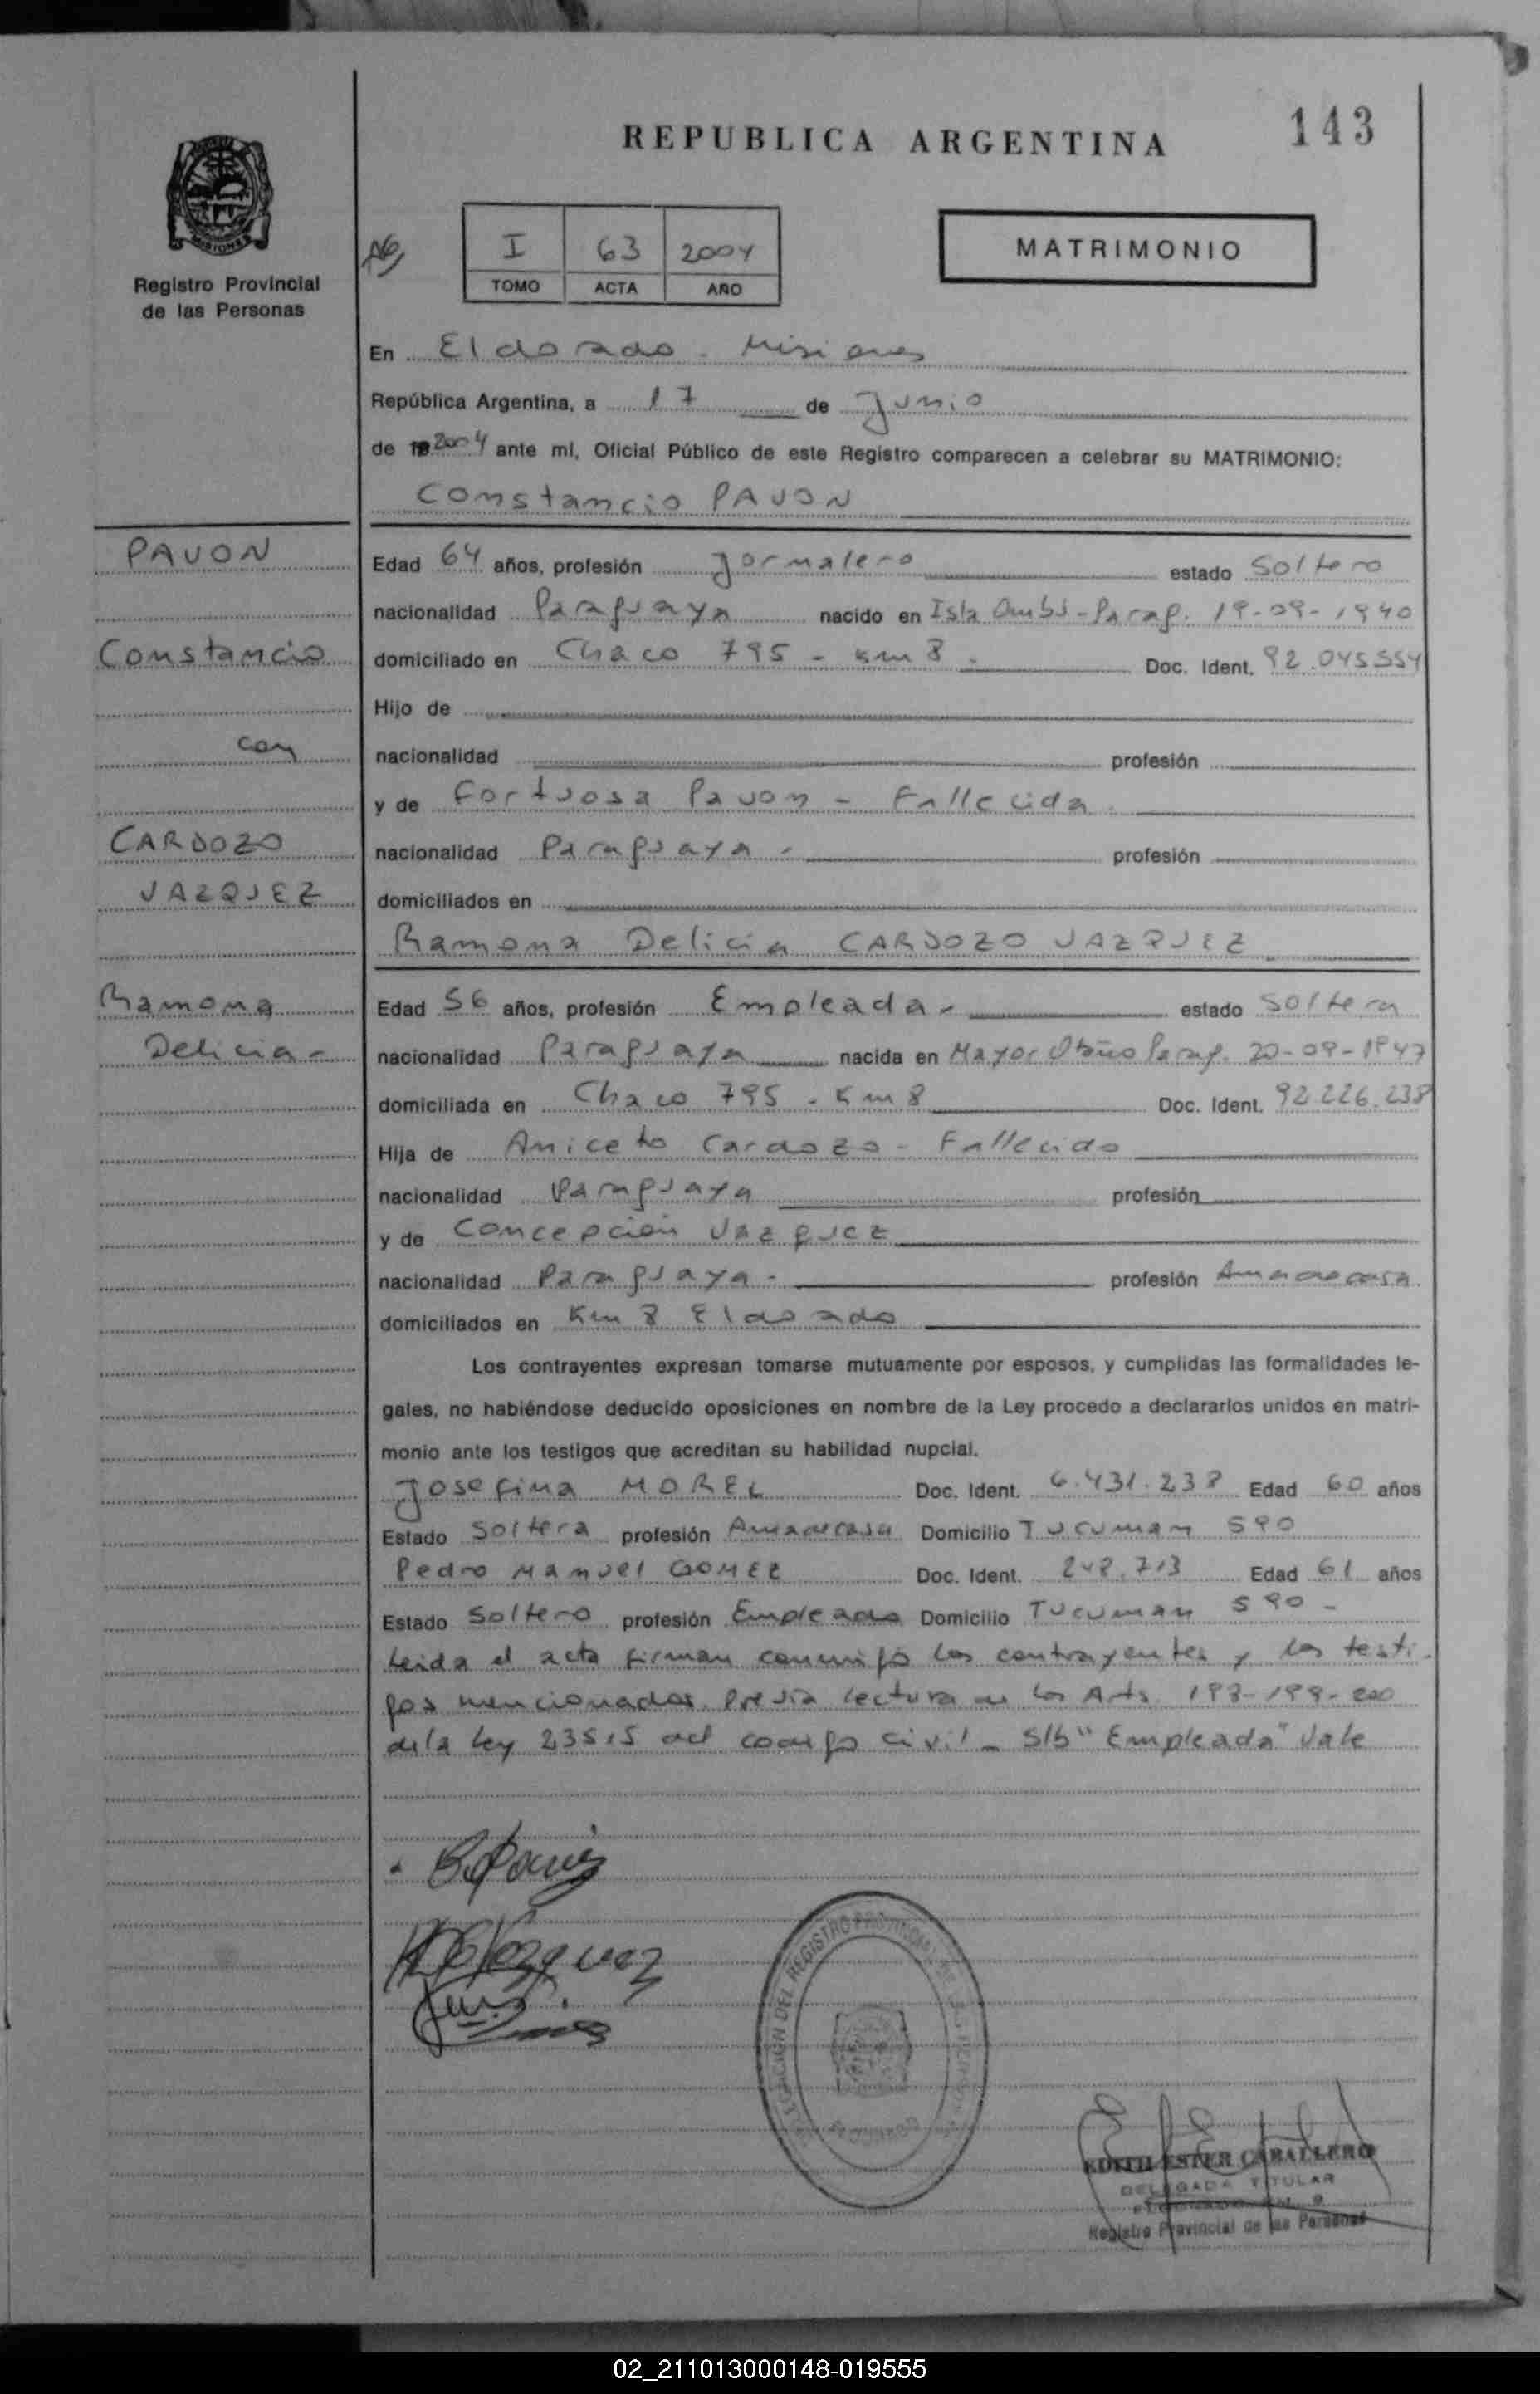 REPUBLICA ARGENTINA
143
MISIONES
Registro Provincial
de las Personas
I 63 2004
TOMO ACTA AÑO
MATRIMONIO
En Eldorado - Misiones
República Argentina, a 17 de Junio
de 19 2004 ante mí, Oficial Público de este Registro comparecen a celebrar su MATRIMONIO:
Constancio PAVON
PAVON
Constancio
con
CARDOZO
VAZQUEZ
Ramona
Delicia -
Edad 64 años, profesión Jornalero estado Soltero
nacionalidad Paraguaya nacido en Isla Ombú - Parag. 19-09-1940
domiciliado en Chaco 795 - Km 8 - Doc. Ident. 92.045554
Hijo de
nacionalidad profesión
y de Fortuosa Pavon - Fallecida.
nacionalidad Paraguaya - profesión
domiciliados en
Ramona Delicia CARDOZO VAZQUEZ
Edad 56 años, profesión Empleada - estado Soltera
nacionalidad Paraguaya nacida en Mayor Otaño Parag. 20-09-1947
domiciliada en Chaco 795 - Km 8 Doc. Ident. 92.226.238
Hija de Aniceto Cardozo - Fallecido
nacionalidad Paraguaya profesión
y de Concepción Vazquez
nacionalidad Paraguaya - profesión Ama de casa
domiciliados en Km 8 Eldorado
Los contrayentes expresan tomarse mutuamente por esposos, y cumplidas las formalidades le-
gales, no habiéndose deducido oposiciones en nombre de la Ley procedo a declararlos unidos en matri-
monio ante los testigos que acreditan su habilidad nupcial.
Josefina MOREL Doc. Ident. 6.431.238 Edad 60 años
Estado Soltera profesión Ama de casa Domicilio Tucuman 590
Pedro Manuel GOMEZ Doc. Ident. 248.713 Edad 61 años
Estado Soltero profesión Empleado Domicilio Tucuman 590 -
Leida el acta firman conmigo los contrayentes y los testi-
gos mencionados. Previa lectura de los Arts. 198-199-200
de la Ley 23515 del codigo civil - S/b "Empleada" Vale
Vazquez
DELEGACION DEL REGISTRO PROVINCIAL DE LAS PERSONAS
ELDORADO
EDITH ESTER CABALLERO
DELEGADA TITULAR
Registro Provincial de las Personas
02_211013000148-019555